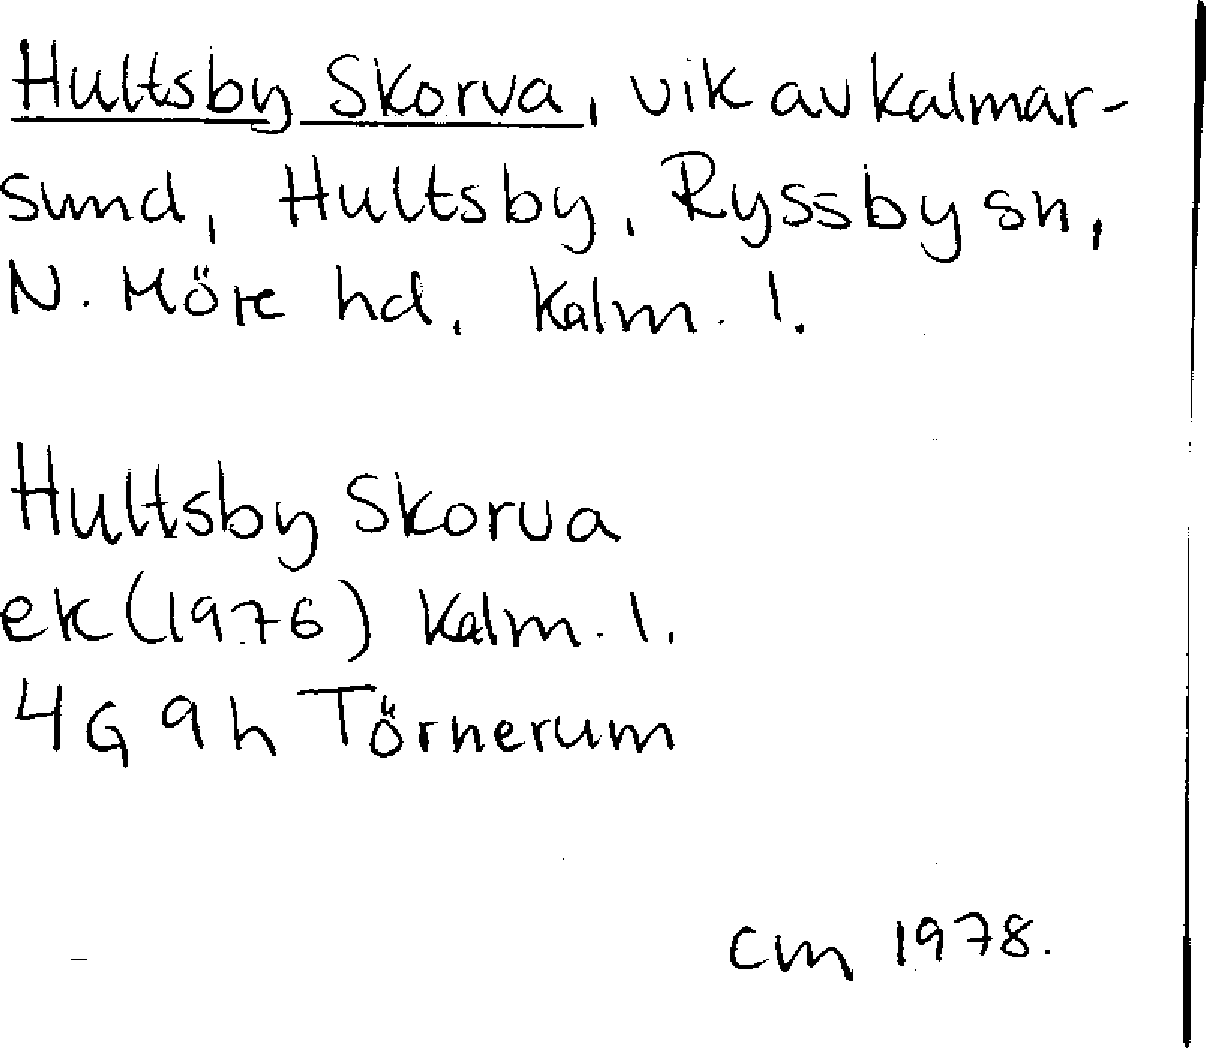 Hultsby Skorva, vik av Kalmar-
sund, Hultsby, Ryssby sn,
N. Möre hd, Kalm. l.
Hultsby Skorva
ek (1976) Kalm. l.
4G 9h Törnerum
CM 1978.